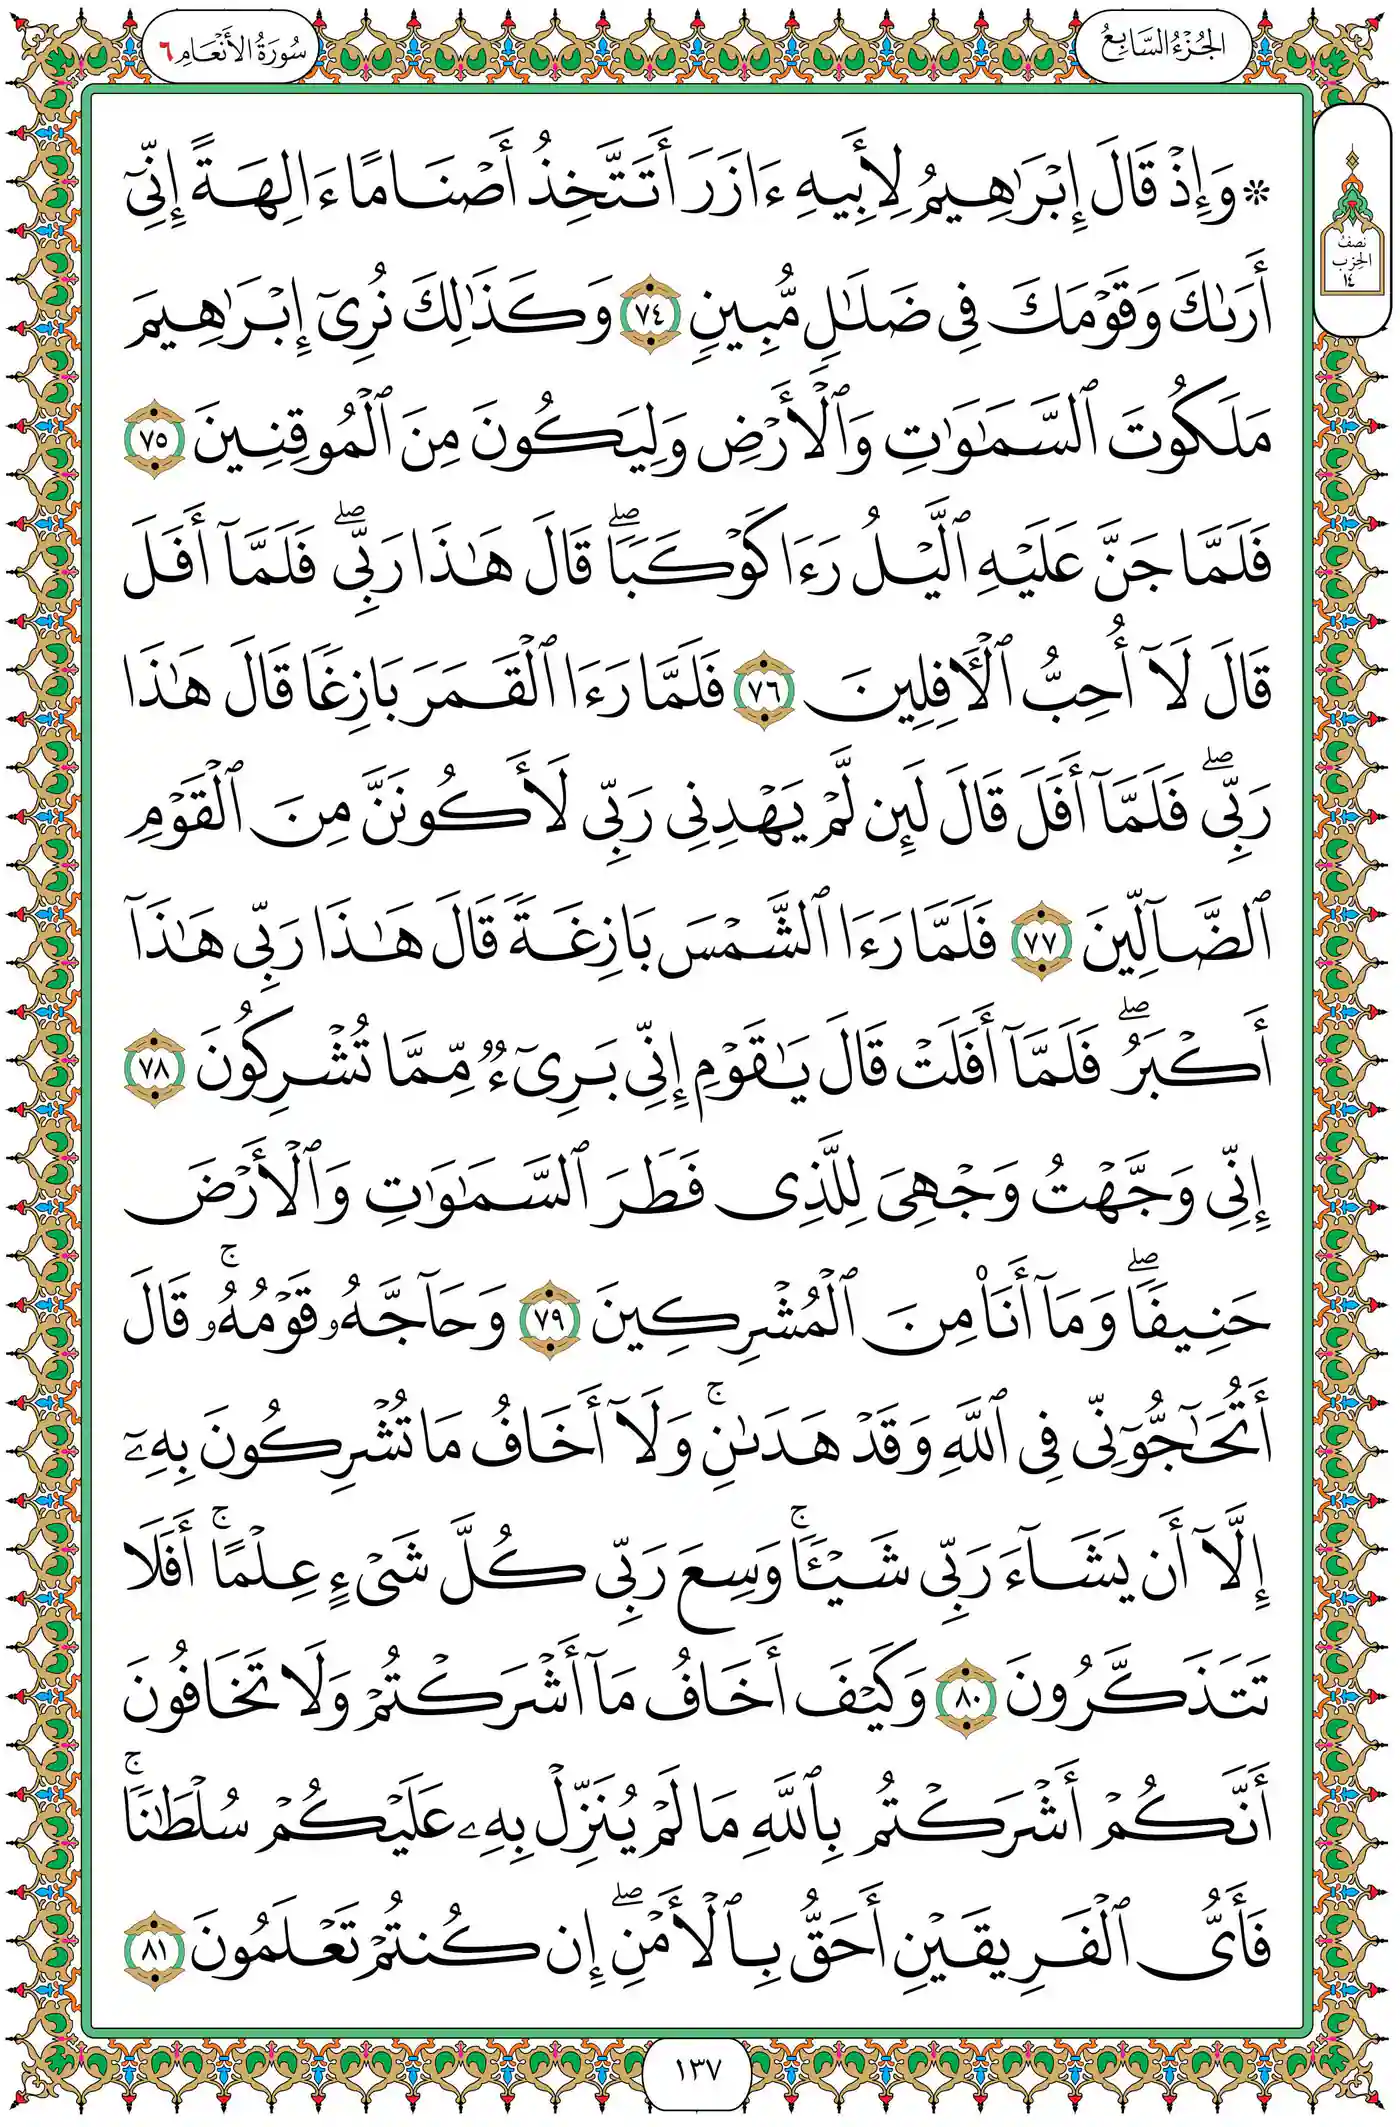 الجُزْءُ السَّابِعُ
سُورَةُ الأَنْعَامِ ٦
نصف
الحِزب
١٤
۞ وَإِذْ قَالَ إِبْرَٰهِيمُ لِأَبِيهِ ءَازَرَ أَتَتَّخِذُ أَصْنَامًا ءَالِهَةً إِنِّىٓ
أَرَىٰكَ وَقَوْمَكَ فِى ضَلَٰلٍ مُّبِينٍ ٧٤ وَكَذَٰلِكَ نُرِىٓ إِبْرَٰهِيمَ
مَلَكُوتَ ٱلسَّمَٰوَٰتِ وَٱلْأَرْضِ وَلِيَكُونَ مِنَ ٱلْمُوقِنِينَ ٧٥
فَلَمَّا جَنَّ عَلَيْهِ ٱلَّيْلُ رَءَا كَوْكَبًاۖ قَالَ هَٰذَا رَبِّىۖ فَلَمَّآ أَفَلَ
قَالَ لَآ أُحِبُّ ٱلْأٓفِلِينَ ٧٦ فَلَمَّا رَءَا ٱلْقَمَرَ بَازِغًا قَالَ هَٰذَا
رَبِّىۖ فَلَمَّآ أَفَلَ قَالَ لَئِن لَّمْ يَهْدِنِى رَبِّى لَأَكُونَنَّ مِنَ ٱلْقَوْمِ
ٱلضَّآلِّينَ ٧٧ فَلَمَّا رَءَا ٱلشَّمْسَ بَازِغَةً قَالَ هَٰذَا رَبِّى هَٰذَآ
أَكْبَرُۖ فَلَمَّآ أَفَلَتْ قَالَ يَٰقَوْمِ إِنِّى بَرِىٓءٌ مِّمَّا تُشْرِكُونَ ٧٨
إِنِّى وَجَّهْتُ وَجْهِىَ لِلَّذِى فَطَرَ ٱلسَّمَٰوَٰتِ وَٱلْأَرْضَ
حَنِيفًاۖ وَمَآ أَنَا۠ مِنَ ٱلْمُشْرِكِينَ ٧٩ وَحَآجَّهُۥ قَوْمُهُۥۚ قَالَ
أَتُحَٰٓجُّوٓنِّى فِى ٱللَّهِ وَقَدْ هَدَىٰنِۚ وَلَآ أَخَافُ مَا تُشْرِكُونَ بِهِۦٓ
إِلَّآ أَن يَشَآءَ رَبِّى شَيْـًٔاۚ وَسِعَ رَبِّى كُلَّ شَىْءٍ عِلْمًاۚ أَفَلَا
تَتَذَكَّرُونَ ٨٠ وَكَيْفَ أَخَافُ مَآ أَشْرَكْتُمْ وَلَا تَخَافُونَ
أَنَّكُمْ أَشْرَكْتُم بِٱللَّهِ مَا لَمْ يُنَزِّلْ بِهِۦ عَلَيْكُمْ سُلْطَٰنًاۚ
فَأَىُّ ٱلْفَرِيقَيْنِ أَحَقُّ بِٱلْأَمْنِۖ إِن كُنتُمْ تَعْلَمُونَ ٨١
١٣٧